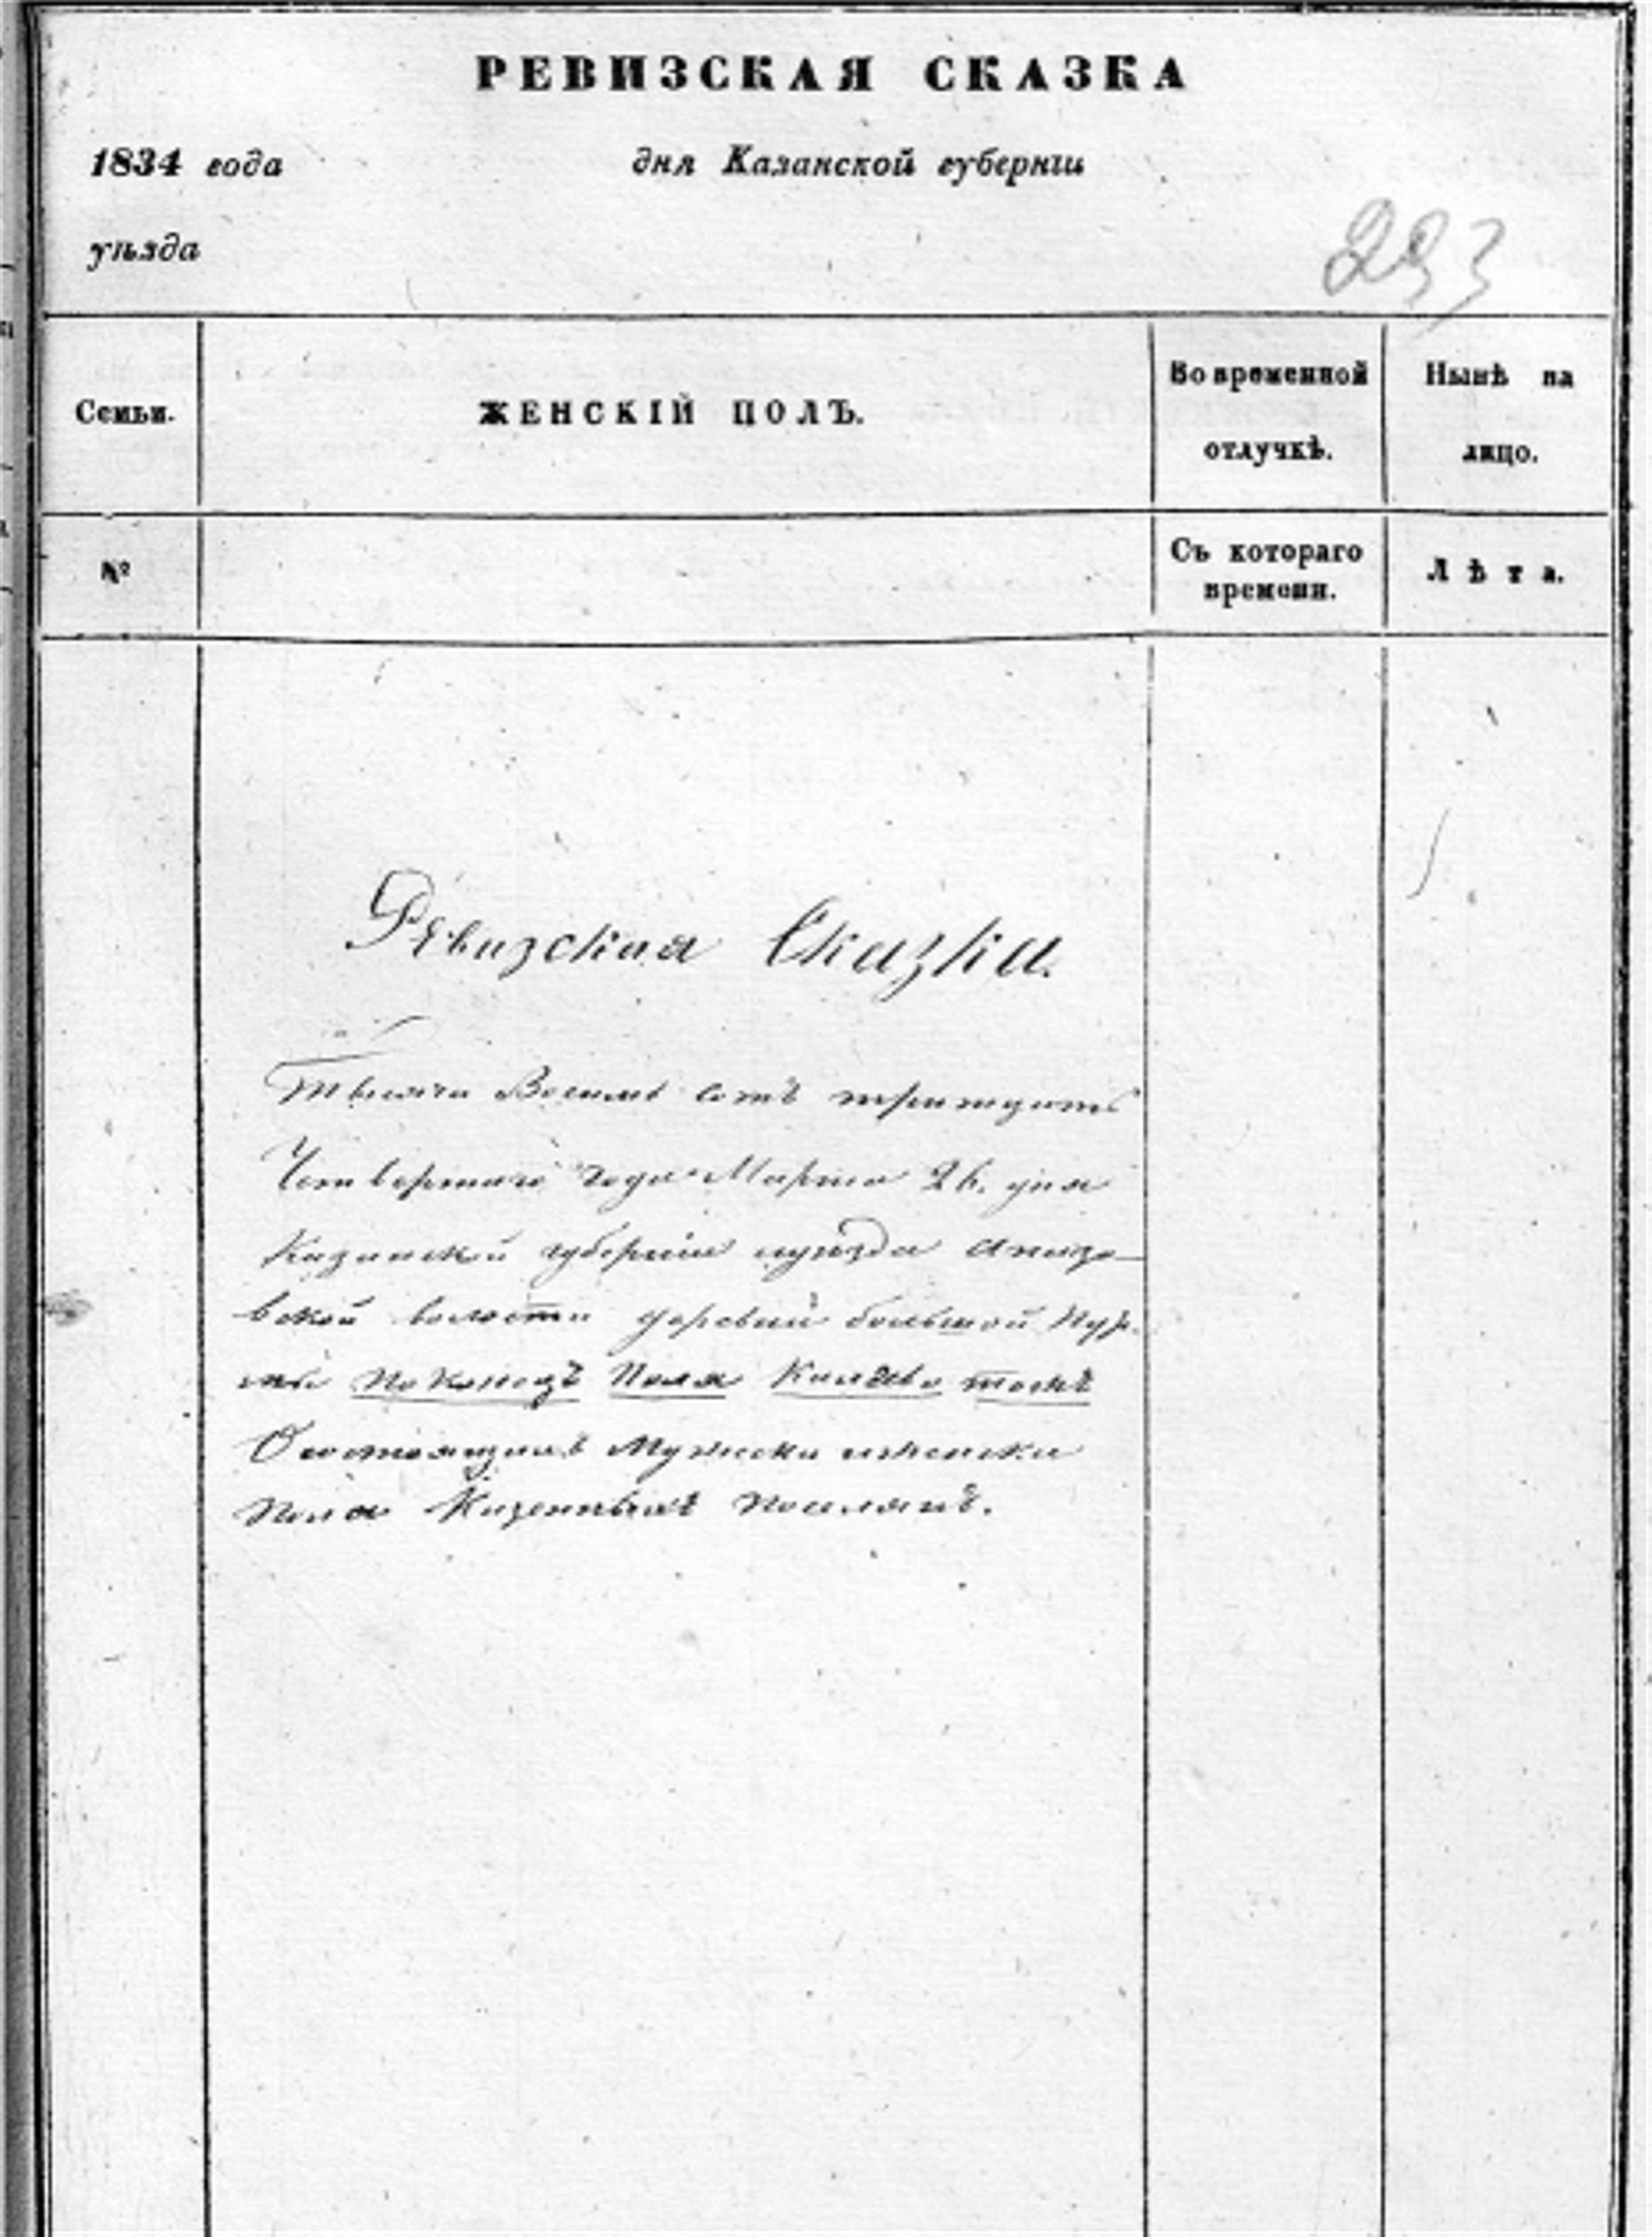 РЕВИЗСКАЯ СКАЗКА
1834 года дня Казанской губерніи
уѣзда
Семьи.
ЖЕНСКІЙ ПОЛЪ.
Во временной
отлучкѣ.
Нынѣ на
лицо.
№
Съ котораго
времени.
Лѣта.
Ревизская Сказка.
Тысяча Восемь сотъ тритцать
Четвертаго года Марта дня
Казанской губерніи уѣзда
вской волости деревни большой
Поля тожъ
Состоящимъ Мужска иженска
Пола Казенныхъ Поселянъ.